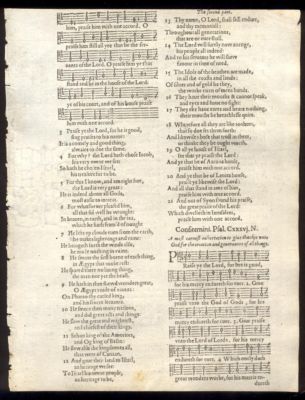 him, praise him with one accord. O
praise him still all ye that be the ser-
vants of the Lord. O praise him ye that
stand and be in the house of the Lord:
ye of his court, and of his house praise
him with one accord.
3 Praise ye the Lord, for he is good,
sing praises to his name:
It is a comely and good thing,
alwaies to doe the same.
4 For why? the Lord hath chose Iacob,
his very owne we see:
So hath he chosen Israel,
his treasure for to be.
5 For this I know, and am right sure,
the Lord is very great:
He is indeed above all Gods,
most easie to intreat.
6 For whatsoever pleased him,
all that full well he wrought:
In heaven, in earth, and in the sea,
which he hath fram'd of nought.
7 He lifts up clouds even from the earth,
he makes lightnings and raine:
He bringeth forth the winds also,
he made nothing in vaine.
8 He smote the first borne of each thing,
in Ægypt that tooke rest:
He spared there no living thing,
the man nor yet the beast.
9 He hath in thee shewd wonders great,
O Ægypt void of
On Pharao thy cursed king,
and his severe
10 He smote then many nations,
and did great acts and things:
He slew the great and mightiest,
and chiefest of their kings.
11 Sehon king of the Amorites,
and Og king of Basan:
He slew also the kingdomes all,
that were of Canaan.
12 And gave their land to Israel,
an heritage we see:
To Israel his owne people,
an heritage to be.
The second part.
13 Thy name, O Lord, shall still endure,
and thy memoriall:
Throughout all generations,
that are or ever shall.
14 The Lord will surely now avenge,
his people all indeed:
And to his servants he will shew
favour in time of need.
15 The Idols of the heathen are made,
in all the coasts and lands:
Of silver and of gold be they,
the worke even of mens hands.
16 They have their mouths & cannot speak,
and eyes and have no sight:
17 They eke have eares and heare nothing,
their mouths be breathlesse quite.
18 Wherefore all they are like to them,
that so doe set them forth:
And likewise those that trust in them,
or thinke they be ought worth.
19 O all ye house of Israel,
see that ye praise the Lord:
And ye that be of Aarons house,
praise him with one accord.
20 And ye that be of Levies house,
praise ye likewise the Lord:
And all that stand in awe of him,
praise him with one accord.
21 And out of Sion sound his praise,
the great praise of the Lord:
Which dwelleth in Ierusalem,
praise him with one accord.
Confitemini. Psal. CXXXVJ. N.
A most earnest exhortation to give thanks unto
God for the creation and governance of all things.
PRaise ye the Lord, for he is good,
for his mercy endureth for ever. 2 Give
praise unto the God of Gods, for his
mercy endureth for ever. 3 Give praise
unto the Lord of Lords, for his mercy
endureth for ever. 4 Which onely doth
great wonders worke, for his mercie en-
dureth